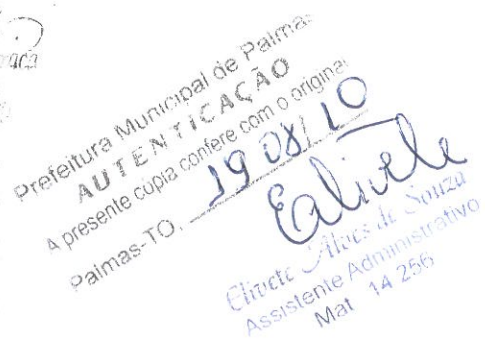 Prefeitura Municipal de Palmas
AUTENTICAÇÃO
A presente cópia confere com o original
Palmas-TO, 19 08/10
Elivete
Elivete Alves de Souza
Assistente Administrativo
Mat 14 256